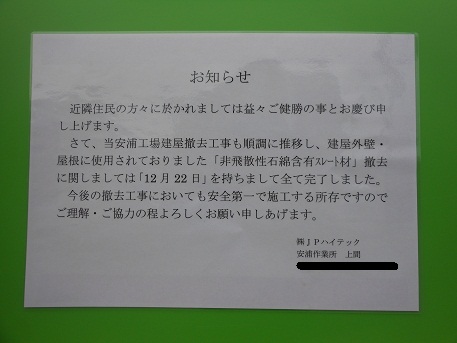 お知らせ
近隣住民の方々に於かれましては益々ご健勝の事とお慶び申
し上げます。
さて、当安浦工場建屋撤去工事も順調に推移し、建屋外壁・
屋根に使用されておりました「非飛散性石綿含有ｽﾚｰﾄ材」撤去
に関しましては「12 月 22 日」を持ちまして全て完了しました。
今後の撤去工事においても安全第一で施工する所存ですので
ご理解・ご協力の程よろしくお願い申しあげます。
㈱ＪＰハイテック
安浦作業所　上間